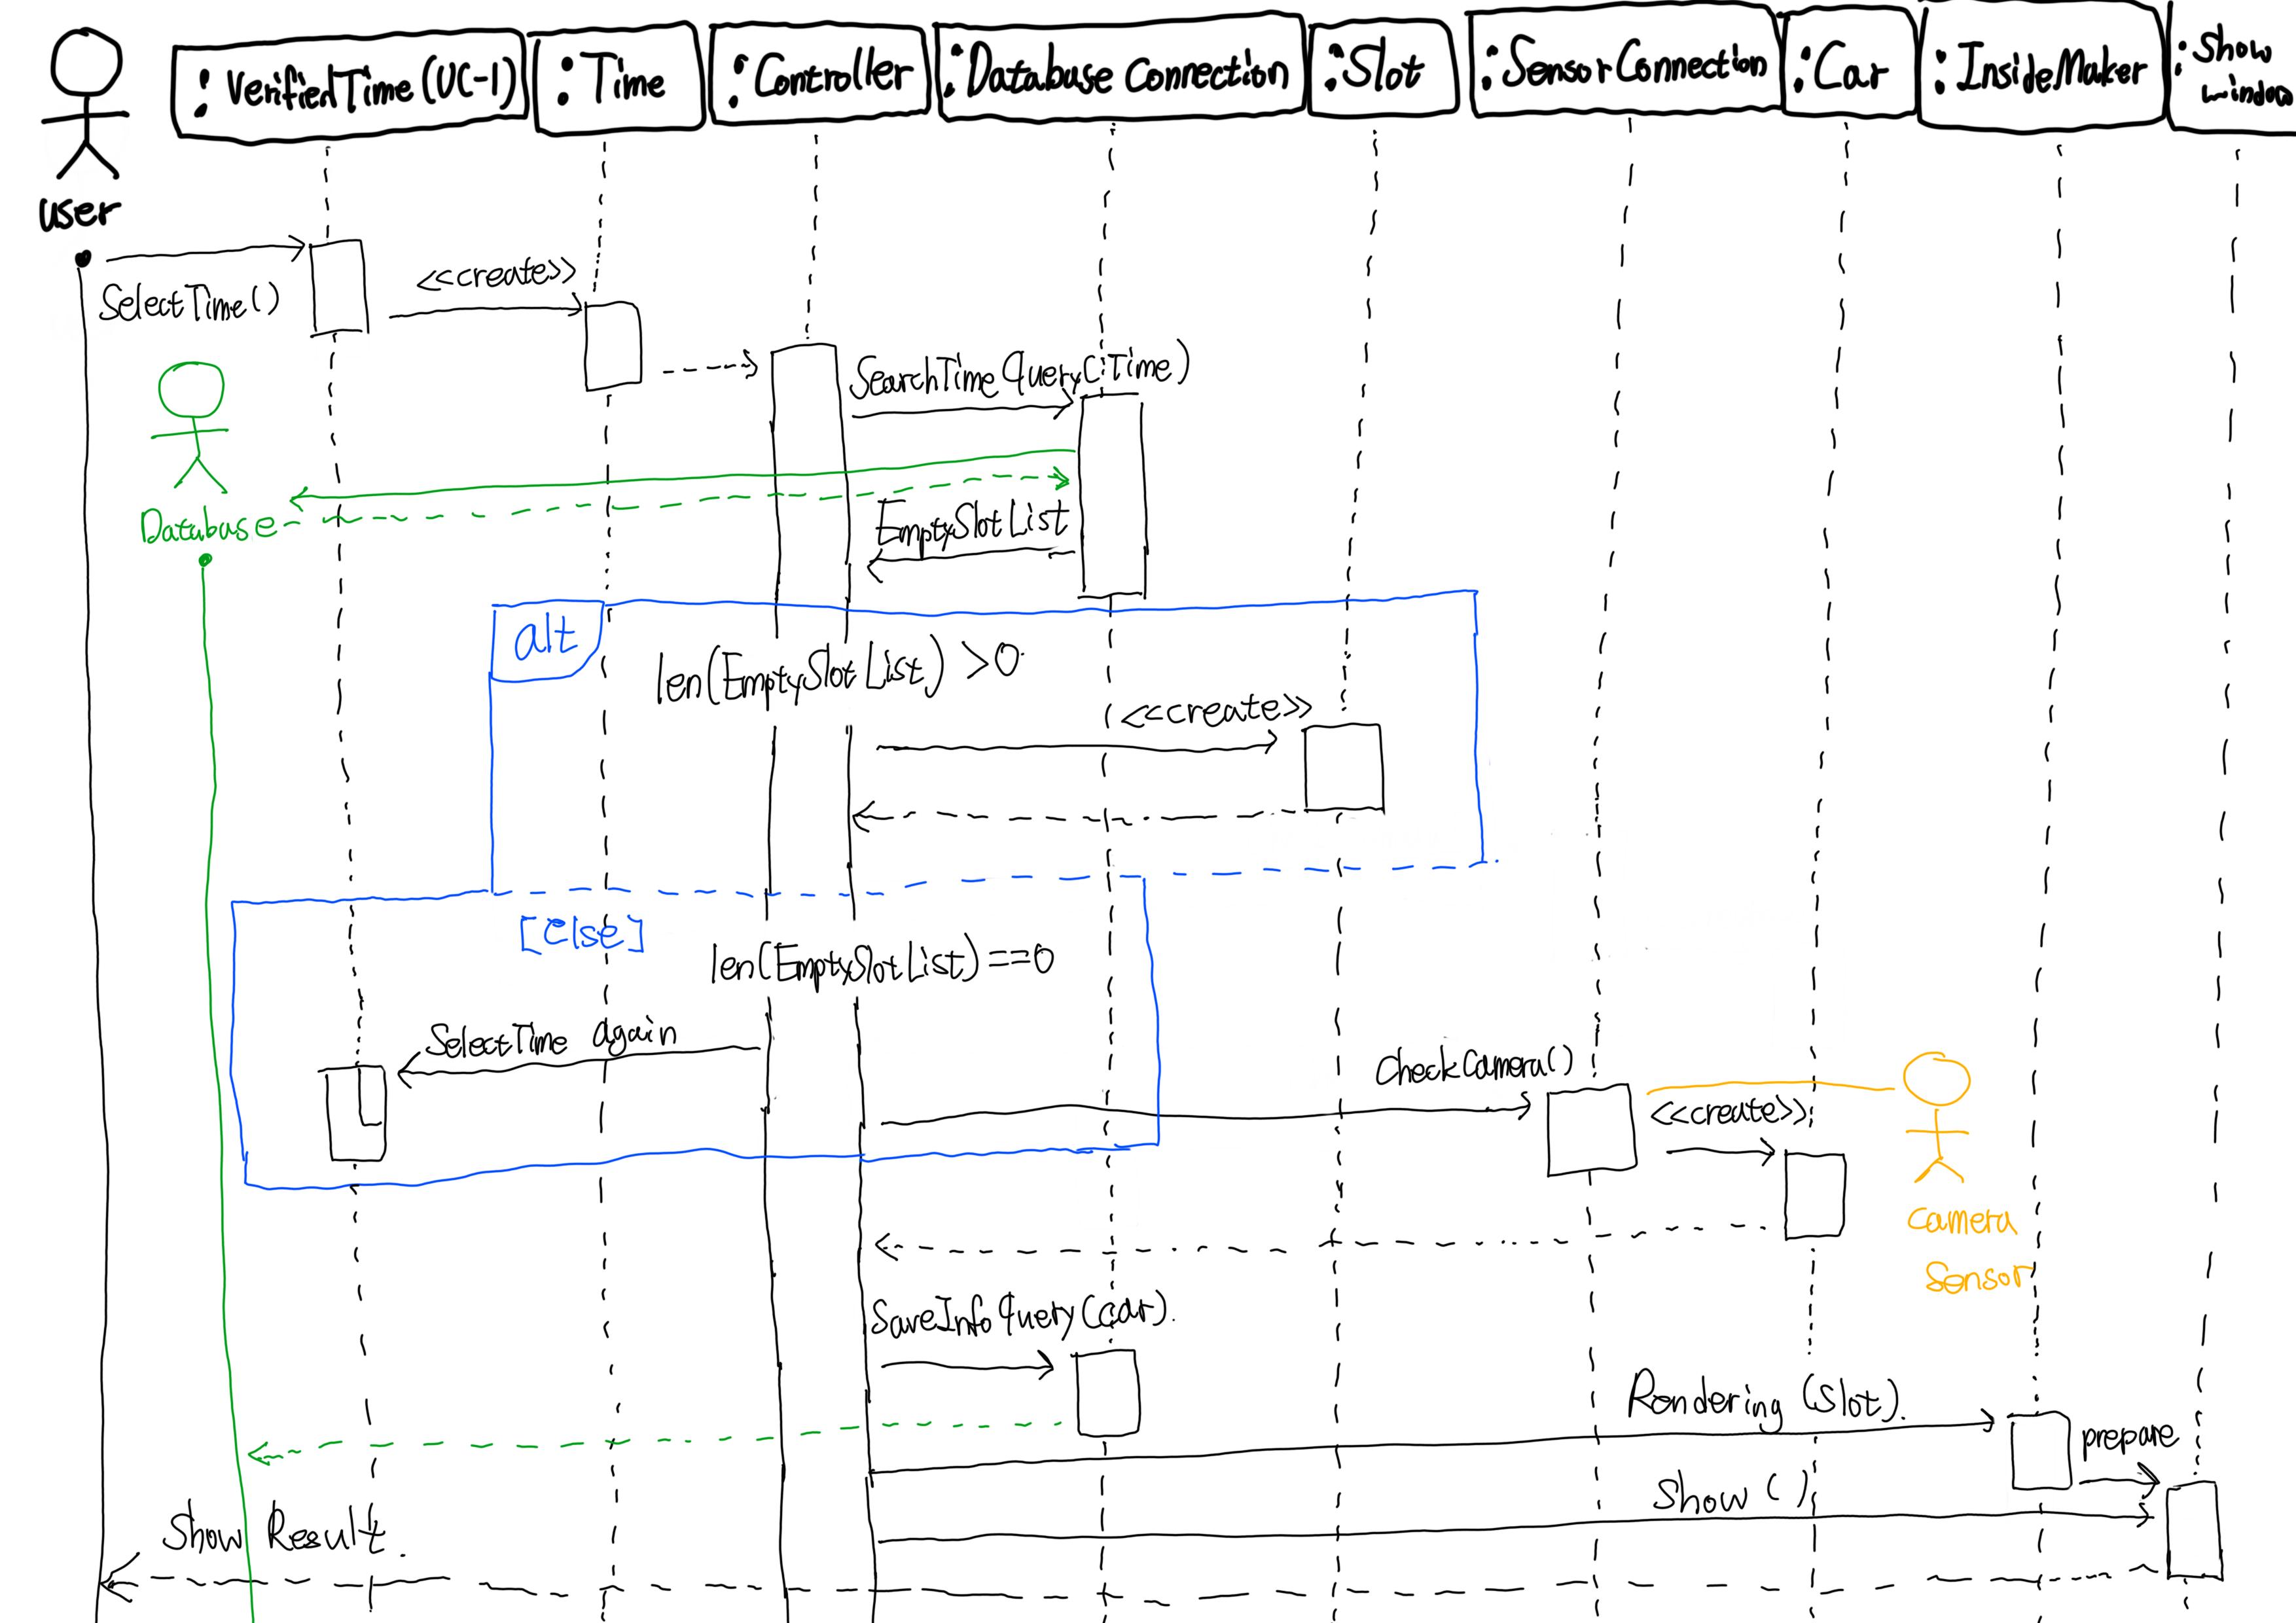 :VerifiedTime(UC-1)
:Time
:Controller
:Database Connection
:Slot
:SensorConnection
:Car
:InsideMaker
:Show
window
user
SelectTime()
<<create>>
SearchTimeQuery(:Time)
Database
EmptySlotList
alt
len(EmptySlotList) >0
<<create>>
[else]
len(EmptySlotList)==0
SelectTime again
CheckCamera()
<<create>>
Camera
Sensor
SaveInfoQuery(car).
Rendering (Slot).
prepare
Show ()
Show Result.